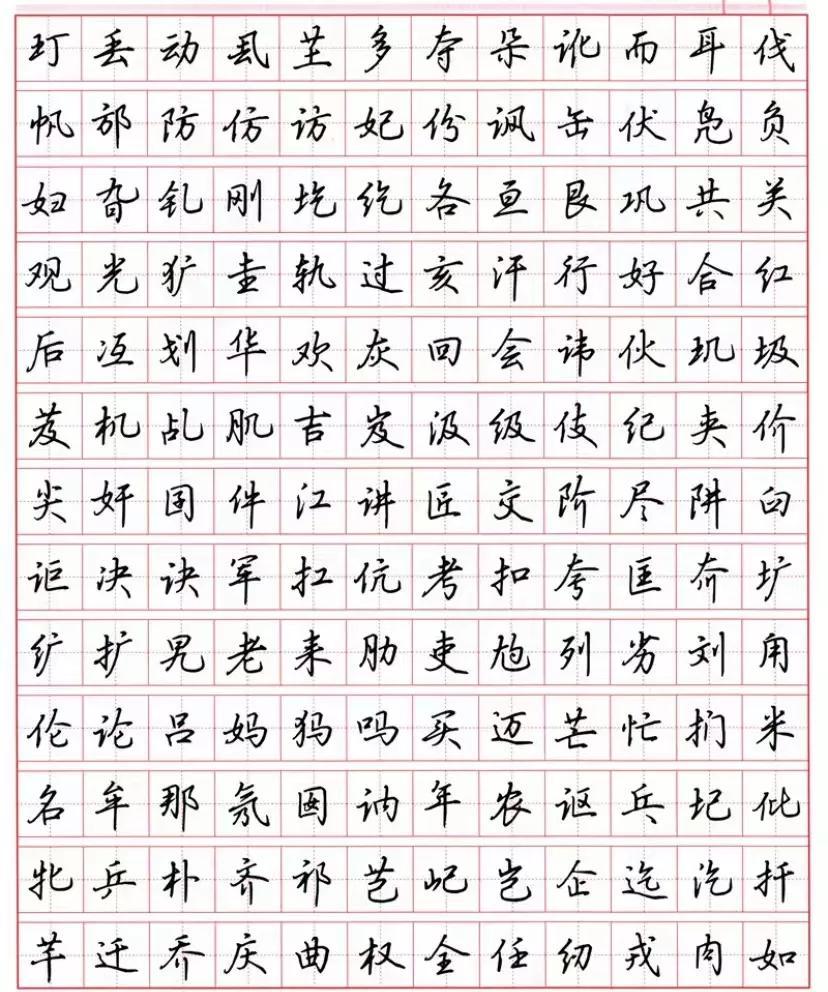 玎丢动芏多夺朵讹而耳伐
帆邡防仿访妃份讽缶伏凫负
妇旮钆刚圪纥各亘艮巩共关
观光犷圭轨过亥汗行好合红
后冱划华欢灰回会讳伙玑圾
芨机乩肌吉岌汲级伎纪夹价
尖奸囝件江讲匠交阶尽阱臼
讵决诀军扛伉考扣夸匡夼圹
纩扩旯老耒肋吏尥列劣刘甪
伦论吕妈犸吗买迈芒忙扪米
名牟那氖囡讷年农讴乓圮仳
牝乒朴齐祁芑屺岂企迄汔扦
芊迁乔庆曲权全任纫戎肉如